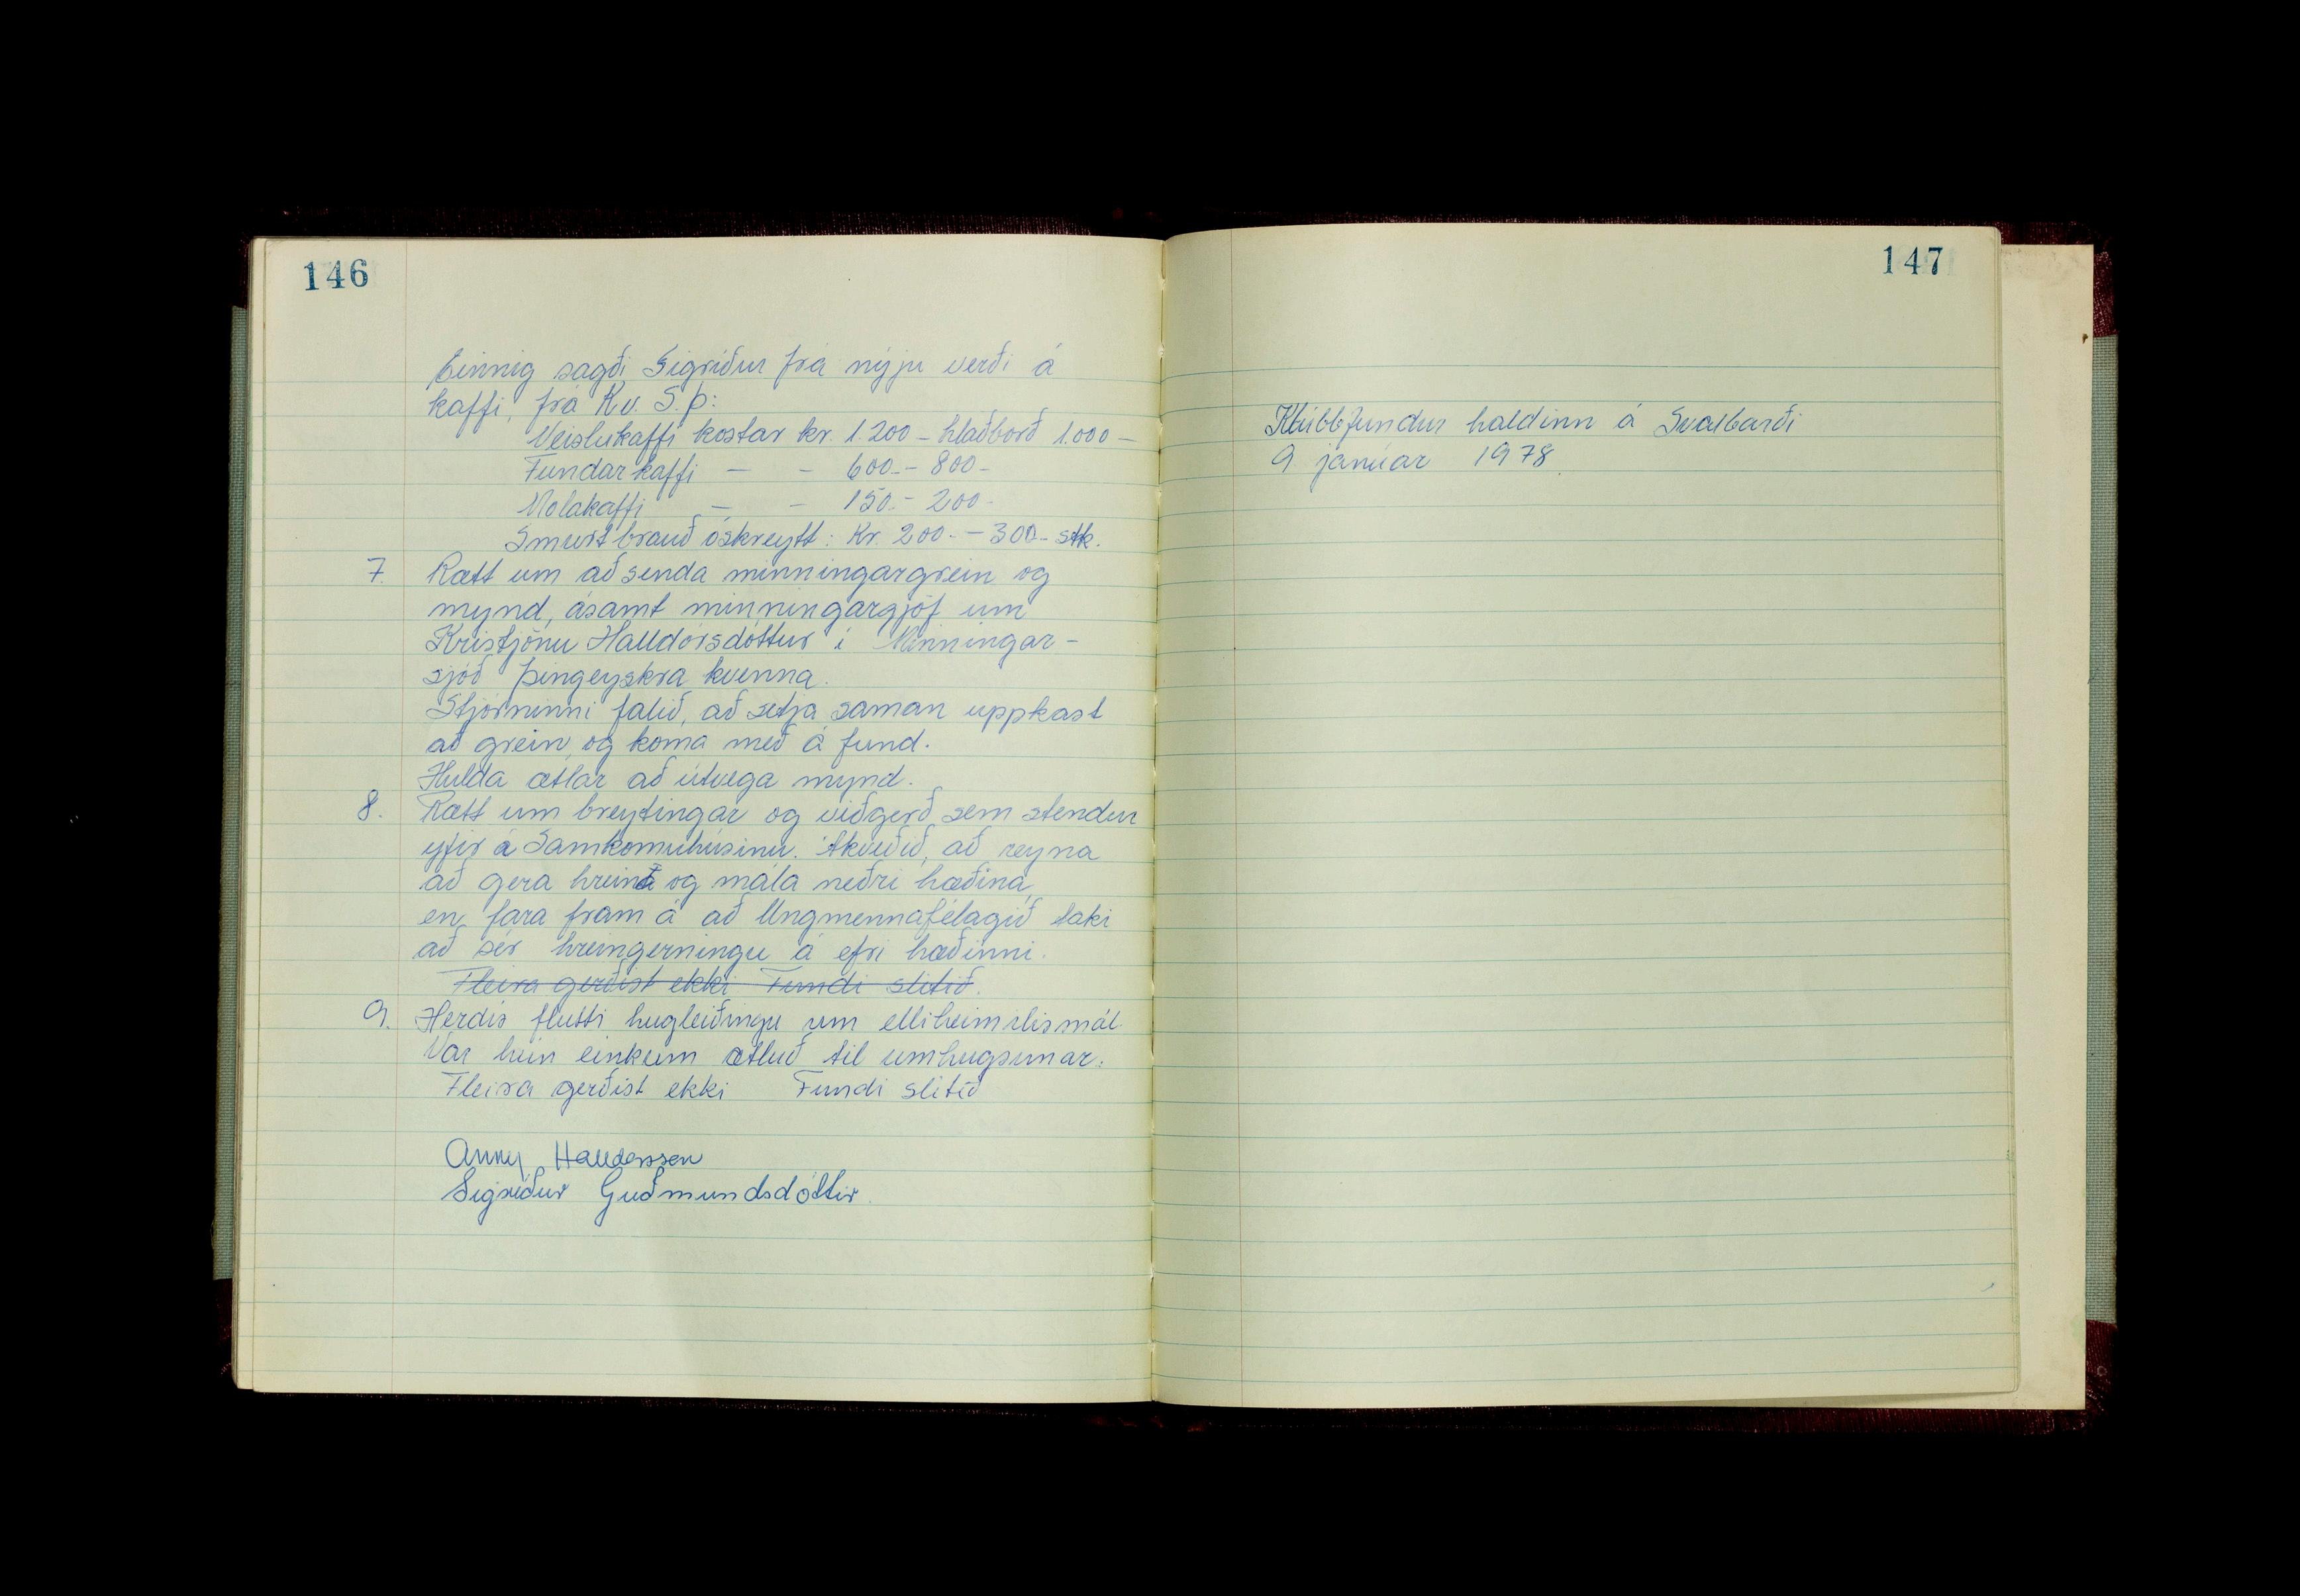 146
Einnig sagði Sigríður frá nýju verði á
kaffi, frá Kv. S.þ:
Veislukaffi kostar kr. 1.200 - hlaðborð 1.000 -
Fundarkaffi — - 600.- - 800 -
Molakaffi — - 150.- - 200 -
Smurt brauð óskreytt: Kr. 200.- - 300.- stk.
7. Rætt um að senda minningargrein og
mynd, ásamt minningargjöf um
Kristjönu Halldórsdóttur í Minningar-
sjóð þingeyskra kvenna.
Stjórninni falið, að setja saman uppkast
að grein, og koma með á fund.
Hulda ætlar að útvega mynd.
8. Rætt um breytingar og viðgerð sem stendur
yfir á Samkomuhúsinu. Ákveðið, að reyna
að gera hreint og mála neðri hæðina,
en fara fram á að Ungmennafélagið taki
að sér hreingerningu á efri hæðinni.
Fleira gerðist ekki Fundi slitið.
9. Herdís flutti hugleiðingu um elliheimilismál.
Var hún einkum ætluð til umhugsunar.
Fleira gerðist ekki Fundi slitið
Anny Halldorssen
Sigríður Guðmundsdóttir.
147
Klúbbfundur haldinn á Svalbarði
9 janúar 1978.